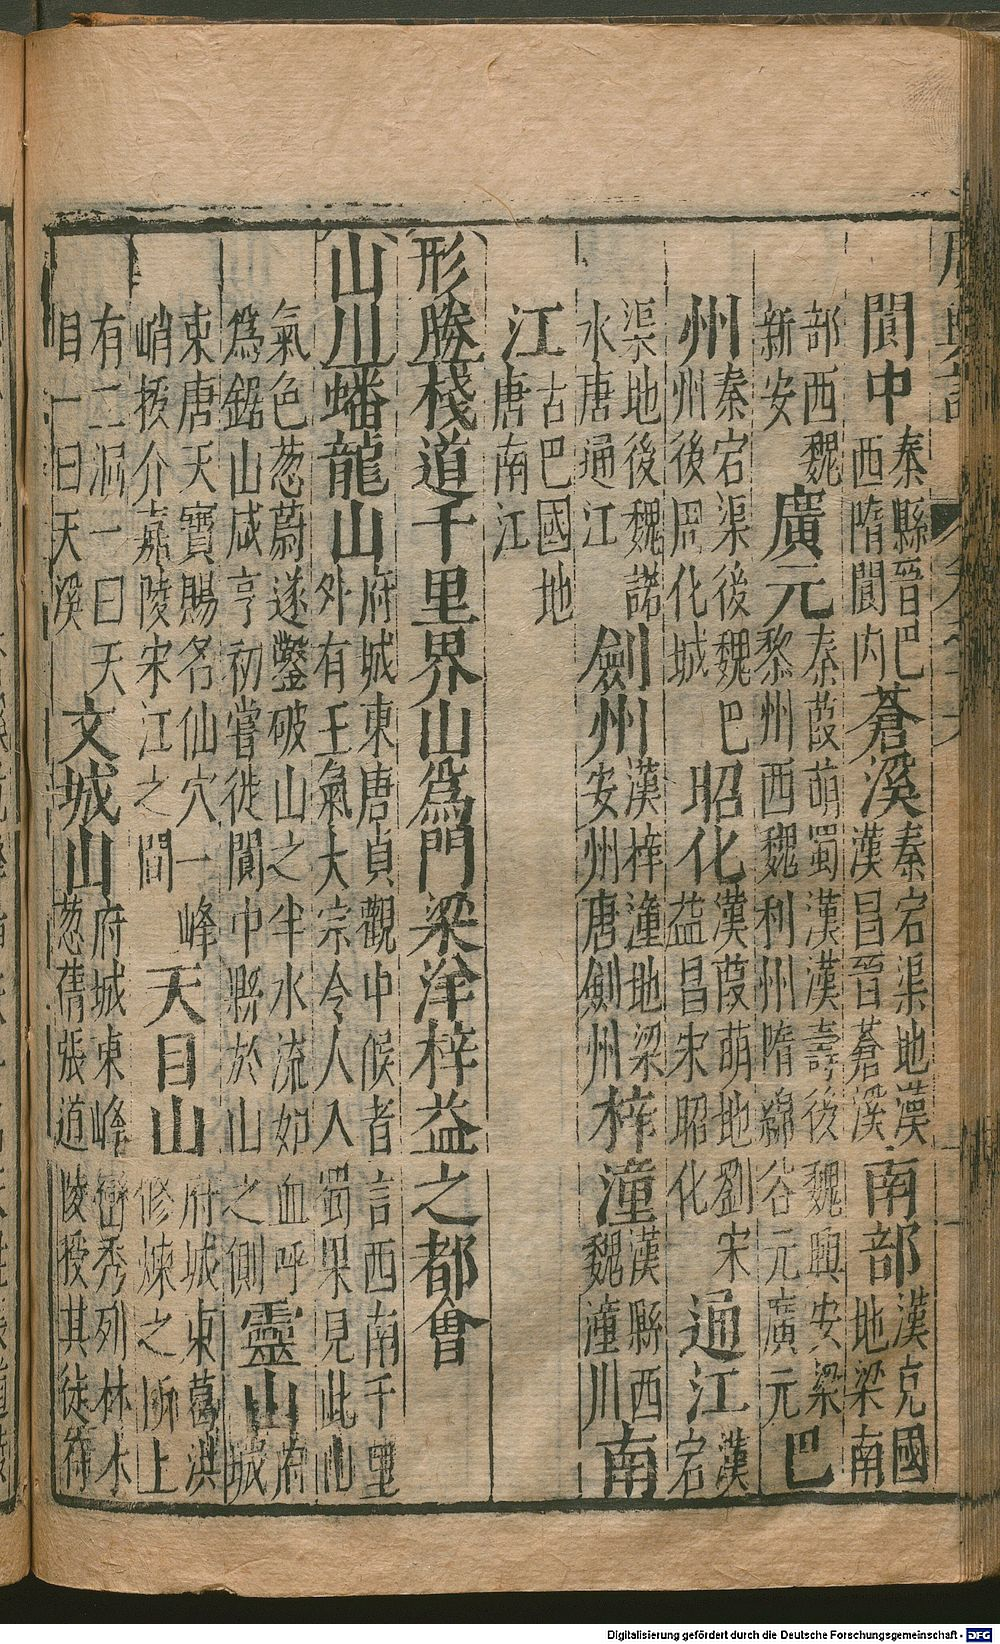 廣輿記 卷之十六
閬中秦縣晉巴西隋閬內蒼溪秦宕渠地漢漢昌晉蒼溪南部漢充國地梁南
部西魏新安廣元秦葭萌蜀漢漢壽後魏興安梁黎州西魏利州隋綿谷元廣元巴
州秦宕渠後魏巴州後周化城昭化漢葭萌地劉宋益昌宋昭化通江漢宕
渠地後魏諾水唐通江劍州漢梓潼地梁安州唐劍州梓潼漢縣西魏潼川南
江古巴國地唐南江
形勝棧道千里界山為門梁洋梓益之都會
山川蟠龍山府城東唐貞觀中候者言西南千里外有王氣大宗令人入蜀果見此山
氣色葱蔚遂鑿破山之半水流如血呼為鋸山咸亨初嘗徙閬中縣於山之側靈山府城
東唐天寶賜名仙穴一峰峭拔介嘉陵宋江之間天目山府城東葛洪修煉之所上
有二洞一曰天目一曰天溪文城山府城東峰巒秀列林木葱蒨張道陵授其徒符
Digitalisierung gefördert durch die Deutsche Forschungsgemeinschaft - DFG